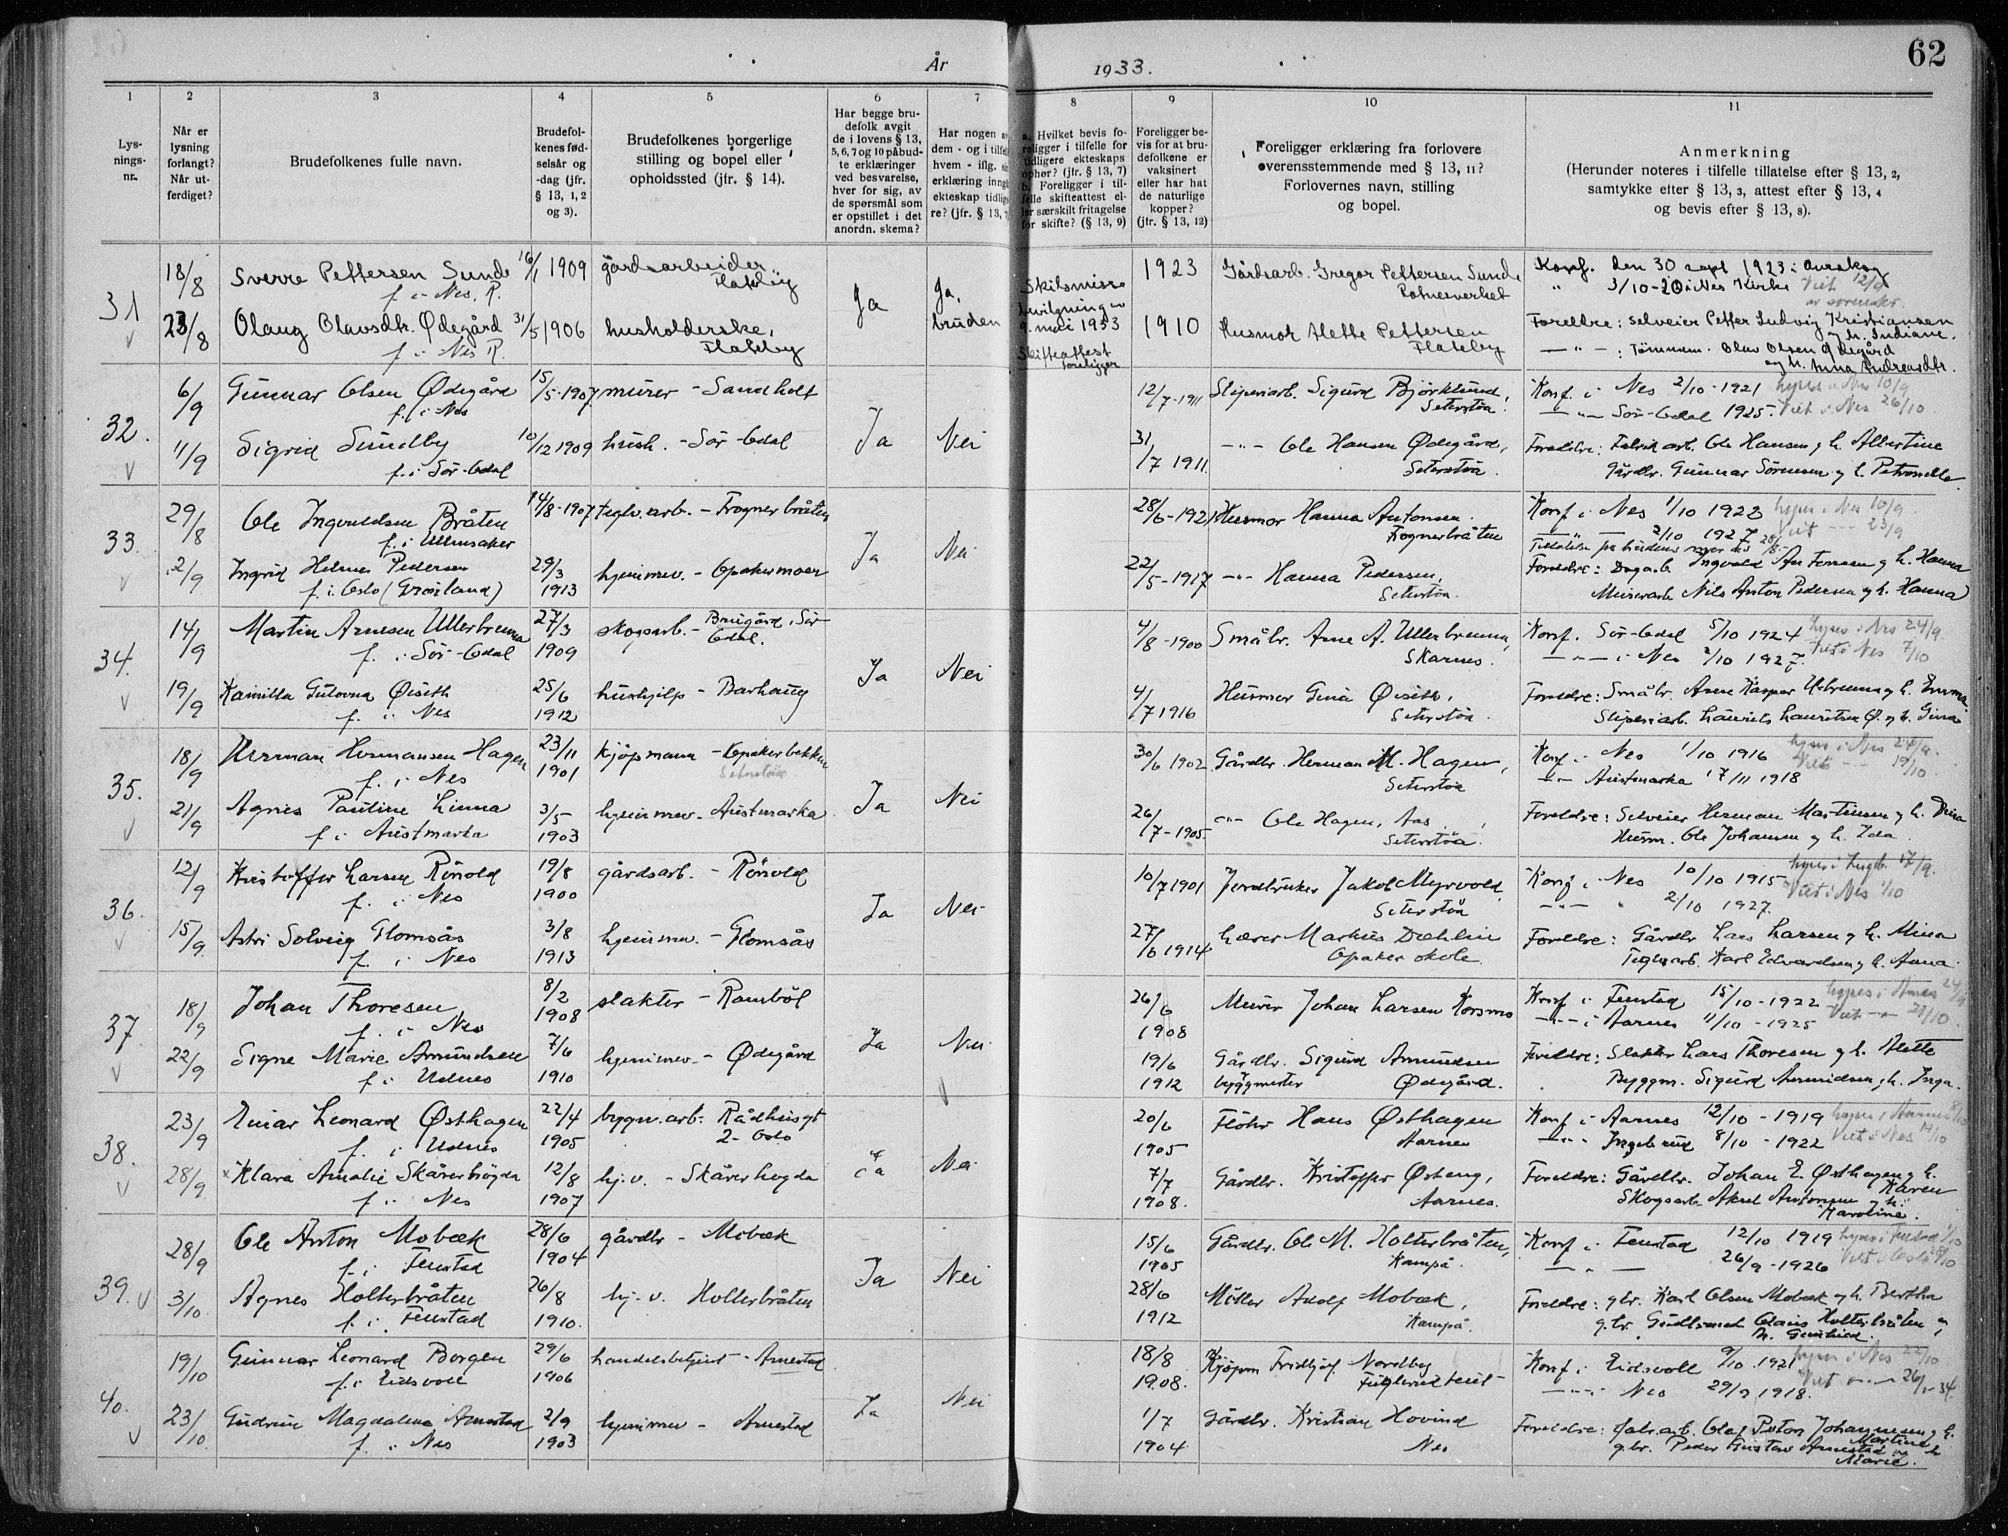 62
År 1933.
1 2 3 4 5 6 7 8 9 10 11
Lys-
nings-
nr.
Når er
lysning
forlangt?
Når ut-
ferdiget?
Brudefolkenes fulle navn.
Brudefol-
kenes fød-
selsår og
-dag (jfr.
§ 13, 1, 2
og 3).
Brudefolkenes borgerlige
stilling og bopel eller
opholdssted (jfr. § 14).
Har begge bru-
defolk avgit
de i lovens § 13,
5, 6, 7 og 10 påbud-
te erklæringer
ved besvarelse,
hver for sig, av
de spørsmål som
er opstillet i det
anordn. skema?
Har nogen av
dem - og i tilfelle
hvem - iflg.
erklæring inngått
ekteskap tidlige-
re? (jfr. § 13, 7
a. Hvilket bevis fo-
religger i tilfelle for
tidligere ekteskaps
ophør? (jfr. § 13, 7)
b. Foreligger i til-
felle skifteattest el-
ler særskilt fritagelse
for skifte? (§ 13, 9)
Foreligger be-
vis for at bru-
defolkene er
vaksinert
eller har hat
de naturlige
kopper?
(jfr. § 13, 12)
Foreligger erklæring fra forlovere
overensstemmende med § 13, 11?
Forlovernes navn, stilling
og bopel.
Anmerkning
(Herunder noteres i tilfelle tillatelse efter § 13, 2,
samtykke efter § 13, 3, attest efter § 13, 4
og bevis efter § 13, 8).
31 18/8 Sverre Pettersen Sunde 16/1 1909 gårdsarbeider Flateby Ja Ja, bruden
f. i Nes, R.
23/8 Olaug Olavsdtr. Ødegård 31/5 1906 husholderske, Flateby
f. i Nes R.
Skilsmisse
bevilgning
9. mai 1933
Skifteattest
foreligger
1923 Gårdsarb. Gregor Pettersen Sunde
1910 Husmor Mette Pettersen
Flateby
Konf. den 30 sept 1923 i Aurskog
" 3/10-20 i Nes Kirke Viet 12/9
av sorenskr.
Foreldre: selveier Petter Ludvig Kristiansen
og h. Indiane.
— " — : Tømmerm. Olav Olsen Ødegård
32. 6/9 Gunnar Olsen Ødegård 15/5-1907 murer - Sandholt Ja Nei
f. i Nes
11/9 Sigrid Sundby 10/12 1909 hush. - Sør-Odal
f. i Sør-Odal
12/7-1911 Sliperiarb. Sigurd Bjørklund, Seterstøa.
31/7 1911. -"- Ole Hansen Ødegård, Seterstøa.
Konf. i Nes 2/10-1921 lyses i Nes 10/9
— " — Sør-Odal 1925. Viet i Nes 26/10.
Foreldre: Fabrikarb. Ole Hansen og h. Albertine
Gårdbr. Gunnar Sørensen og h. Petronelle.
33. 29/8 Ole Ingvaldsen Bråten 14/8-1907 teglv.arb. - Frognerbråten Ja Nei
f. i Ullensaker
2/9 Ingrid Helene Pedersen 29/3 1913 hjemmev. - Opakermoen
f. i Oslo (Grønland)
28/6-1921 Husmor Hanna Antonsen.
22/5-1917 -"- Hanna Pedersen, Seterstøa.
Konf. i Nes 1/10 1922 lyses i Nes 10/9
2/10 1927 Viet --- 23/9
Foreldre: Dagarb. Ingvald Antonsen og h. Hanna
Murerarb. Nils Anton Pedersen og h. Hanna
34. 14/9 Martin Arnesen Ullerbrenna 27/3 1909 skogsarb. - Bruigård, Sør-Odal. Ja Nei
f. i Sør-Odal
19/9 Kamilla Øiseth 25/6 1912 hushjelp - Barhaug
f. i Nes
4/8-1900 Småbr. Arne A. Ullerbrenna, Skarnes.
4/7 1916 Husmor Gina Øiseth, Seterstøa.
Konf. Sør-Odal 5/10 1924 lyses i Nes 24/9.
— " — i Nes 2/10 1927. Viet i Nes 7/10
Foreldre: Småbr. Arne Kasper Ulbrenna og h. Emma.
Sliperiarb. Laurits Lauritsen Ø. og h. Gina
35. 18/9 Herman Hermansen Hagen 23/11 1901 kjøpmann - Opakerbekken Seterstøa Ja Nei
f. i Nes
21/9 Agnes Pauline Linna 3/5 1903 hjemmev. - Austmarka
f. i Austmarka
30/6 1902 Gårdbr. Herman M. Hagen, Seterstøa
26/7-1905 -"- Ole Hagen, Aas, Seterstøa.
Konf. i Nes 1/10 1916 lyses i Nes 24/9.
-"- Austmarka 17/11 1918 Viet --- 19/10.
Foreldre: Selveier Herman Martinsen og h. Dina
Husm. Ole Johansen og h. Ida.
36. 12/9 Kristoffer Larsen Rönold 19/8 1900 gårdsarb. - Rönold Ja Nei
f. i Nes
15/9. Astri Solveig Glomsås 3/8 1913 hjemmev. - Glomsås
f. i Nes
10/7 1901 Jordbruker Jakob Myrvold, Seterstøa
27/6 1914 Lærer Markus Dæhlin
Opaker skole.
Konf i Nes 10/10 1915 17/9.
-"- " 2/10 1927. Viet i Nes 1/10
Foreldre: Gårdbr. Lars Larsen og h. Mina
Teglv.arb. Karl Edvardsen og h. Anna.
37. 18/9 Johan Thoresen 8/2 1908 slakter - Rambøl Ja Nei
f. i Nes
22/9 Signe Marie Amundsen 7/6 1910 hjemmev. - Ødegård
f. i Udnes
26/6 1908 Murer Johan Larsen Korsmo
19/6 1912 Gårdbr. Sigurd Amundsen
byggmester Ødegård.
Konf i Fenstad 15/10-1922
-"- i Aarnes 11/10-1925
Foreldre: Slakter Lars Thoresen og h. Alette
Byggm. Sigurd Amundsen og h. Inga.
38. 23/9 Einar Leonard Østhagen 22/4 1905 bygn.arb: Rådhusgt 2- Oslo Ja Nei
f. i Udnes
28/9 Klara Amalie Skårerhøgda 12/8 1907 hj.v. - Skårerhøgda
f. i Nes
20/6 1905 Hans Østhagen Aarnes
7/7 1908. Gårdbr. Kristoffer Østeng, Aarnes.
Konf i Aarnes 12/10-1919
-"- Ingeb.rud 8/10-1922 Viet i Nes 14/10
Foreldre: Gårdbr. Johan E. Østhagen og h. Karen
Skogsarb. Aksel Antonsen og h. Karoline.
39. 28/9 Ole Anton Mobæk 28/6 1904 gårdbr - Mobæk Ja Nei
f. i Fenstad
3/10. Agnes Holterbråten 26/8 1910. hj.v. Holterbråten
f. i Fenstad
15/6 1905 Gårdbr. Ole M. Holterbråten, Kampå.
28/6 1912 Møller Adolf Mobæk, Kampå.
Konf i Fenstad 12/10 1919
— " — 26/9-1926
Foreldre: gbr. Karl Olsen Mobæk og h. Bertha
40. 19/10 Gunnar Leonard Borgen 29/6 1906 handelsbetjent - Arnestad Ja Nei
f. i Eidsvoll
23/10. Gudrun Magdalena Arnestad 2/9 1903 hjemmev - Arnestad
f. i Nes
18/8 1908. Kjøpm Fridtjof Nordby
1/7 1904 Gårdbr. Kristian Hovind
Nes
Konf i Eidsvoll 9/10 1921 lyses i Nes 22/10
-"- Nes 29/9 1918. Viet
Foreldre: fabr.arb. Olaf Peton Johannesen og h. Martine
gbr. Peder Gustav Arnestad og h. Marie.